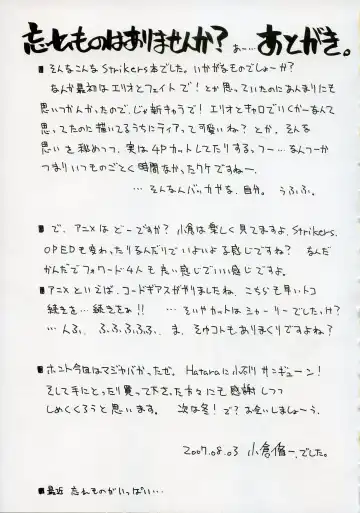 忘れものはありませんか? あー… あとがき。
■そんなこんなStrikers本でした。いかがなものでしょーか?
なんか最初はエリオとフェイトで!とか思っていたのにあんまりにも
思いつかんかったので、じゃ新キャラで!エリオとキャロでいくかーなんて
思ってたのに描いてるうちにティアって可愛いね?とか。そんな
思いを秘めつつ、実は4Pカットしてたりするっつー…なんつーか
つまりいつものごとく時間なかったワケですねー。
… そんなんバッカやな、自分。うふふ。
■で、アニメはどーですか?小倉は楽しく見てますよ、Strikers.
OPEDも変わったりなんだりでいよいよな感じですね?なんだ
かんだでフォワード4人も良い感じでいい感じですよ。
■アニメといえば、コードギアスがやりましたね、こちらも早いトコ
続きを…続きをぉ!! …そいやカットはシャーリーでしたっけ?
…んふ、ふふふふふ、ま、そゆコトもありまくりですよね?
■ホント今回はマジヤバかったぜ。Hataraに小ぶり サンギューン!
そして手にとったり買って下さった方々にも感謝しつつ
しめくくろうと思います。次は冬!で?お会いしましょーう。
2007.08.03 小倉脩一でした。
■最近 忘れものがいっぱい…